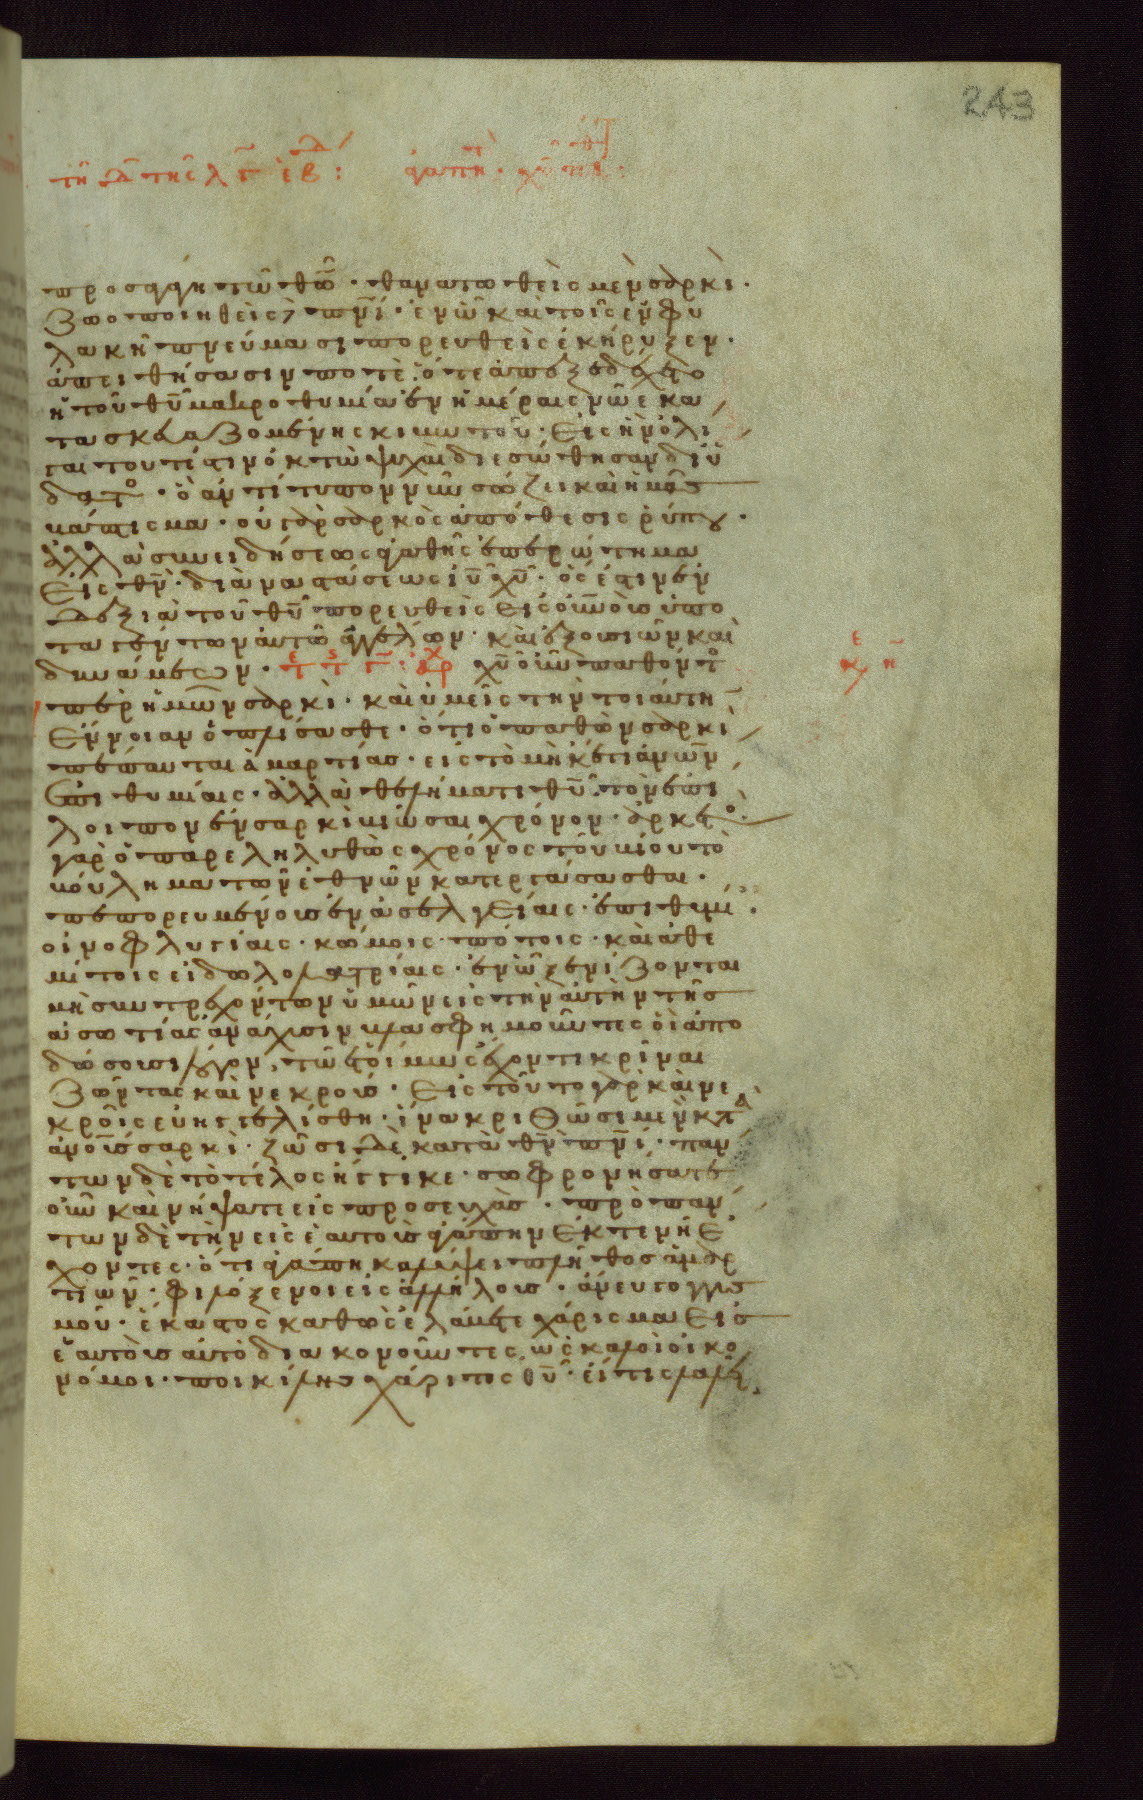 243
τῆ δ̅ τῆς λ̅γ̅ ἑβδ :
προσαγάγη τῶ θῶ̅ · θανατωθεὶς μὲν σαρκὶ ·
ζωοποιηθεὶς δὲ π̅ν̅ι · ἐν ὧ καὶ τοῖς ἐν φυ
λακῆ πνεύμασι πορευθεὶς ἐκήρυξεν ·
ἀπειθήσασιν ποτὲ · ὅτε ἀπεξεδέχετο
ἡ τοῦ θ̅υ̅ μακροθυμία ἐν ἡμέραις νῶε κα
τασκευαζομένης κιβωτοῦ · εἰς ἣν ὀλί
γαι τουτέστιν ὀκτὼ ψυχαὶ διεσώθησαν δι ὕ
δατος · ὃ ἀντίτυπον νῦν σώζει καὶ ἡμᾶς
βάπτισμα · οὐ σαρκὸς ἀπόθεσις ρύπου ·
ἀλλὰ συνειδήσεως ἀγαθῆς ἐπερώτημα
εἰς θ̅ν̅ · δι ἀναστάσεως ι̅υ̅ χ̅υ̅ · ὅς ἐστιν ἐν
δεξιᾶ τοῦ θ̅υ̅ πορευθεὶς εἰς οὐ̅νὸν ὑπο
ταγέντων αὐτῶ ἀγγέλων · καὶ ἐξουσιῶν καὶ
δυνάμεων · χ̅υ̅ οὖν παθόντος
ὑπὲρ ἡμῶν σαρκὶ · καὶ ὑμεῖς τὴν τοιαύτη̅
ἔννοιαν ὁπλίσασθε · ὅτι ὁ παθὼν σαρκὶ
πέπαυται ἁμαρτίας · εἰς τὸ μηκέτι ἀν̅ω̅ν
ἐπιθυμίαις · ἀλλὰ θελήματι θ̅υ̅ · τὸν ἐπί
λοιπον ἐν σαρκὶ βιῶσαι χρόνον · ἀρκετὸς
γὰρ ὁ παρεληλυθὼς χρόνος τοῦ βίου τὸ
βούλημα τῶν ἐθνῶν κατεργάσασθαι ·
πεπορευμένους ἐν ἀσελγείαις · ἐπιθυμί ·
οἰνοφλυγίαις · κώμοις · πότοις · καὶ ἀθε
μίτοις εἰδωλολατρίαις · ἐν ὧ ξενίζονται
μὴ συντρεχόντων ὑμῶν εἰς τὴν αὐτὴν τῆς
ἀσωτίας ἀνάχυσιν βλασφημοῦντες · οἳ ἀπο
δώσουσι λόγον, τῶ ἑτοίμως ἔχοντι κρῖναι
ζῶντας καὶ νεκρούς · εἰς τοῦτο γὰρ καὶ νε
κροῖς εὐηγγελίσθη · ἵνα κριθῶσι μὲν κατὰ
ἀνο̅ις σαρκὶ · ζῶσι δὲ κατὰ θ̅ν̅ π̅ν̅ι · παν
των δὲ τὸ τέλος ἤγγικε · σωφρονήσατε
οὖν καὶ νήψατε εἰς προσευχὰς · πρὸ παν
των δὲ τὴν εἰς ἑαυτοὺς ἀγάπην ἐκτενῆ ἔ
χοντες · ὅτι ἀγάπη καλύψει πλῆθος ἁμαρ
τιῶν · φιλόξενοι εἰς ἀλλήλους · ἄνευ γογγυσ
μοῦ · ἕκαστος καθὼς ἔλαβε χάρισμα εἰς
ἑαυτοὺς αὐτὸ διακονοῦντες ὡς καλοὶ οἰκο
νόμοι · ποικίλης χάριτος θ̅υ̅ · εἴ τις λαλεῖ